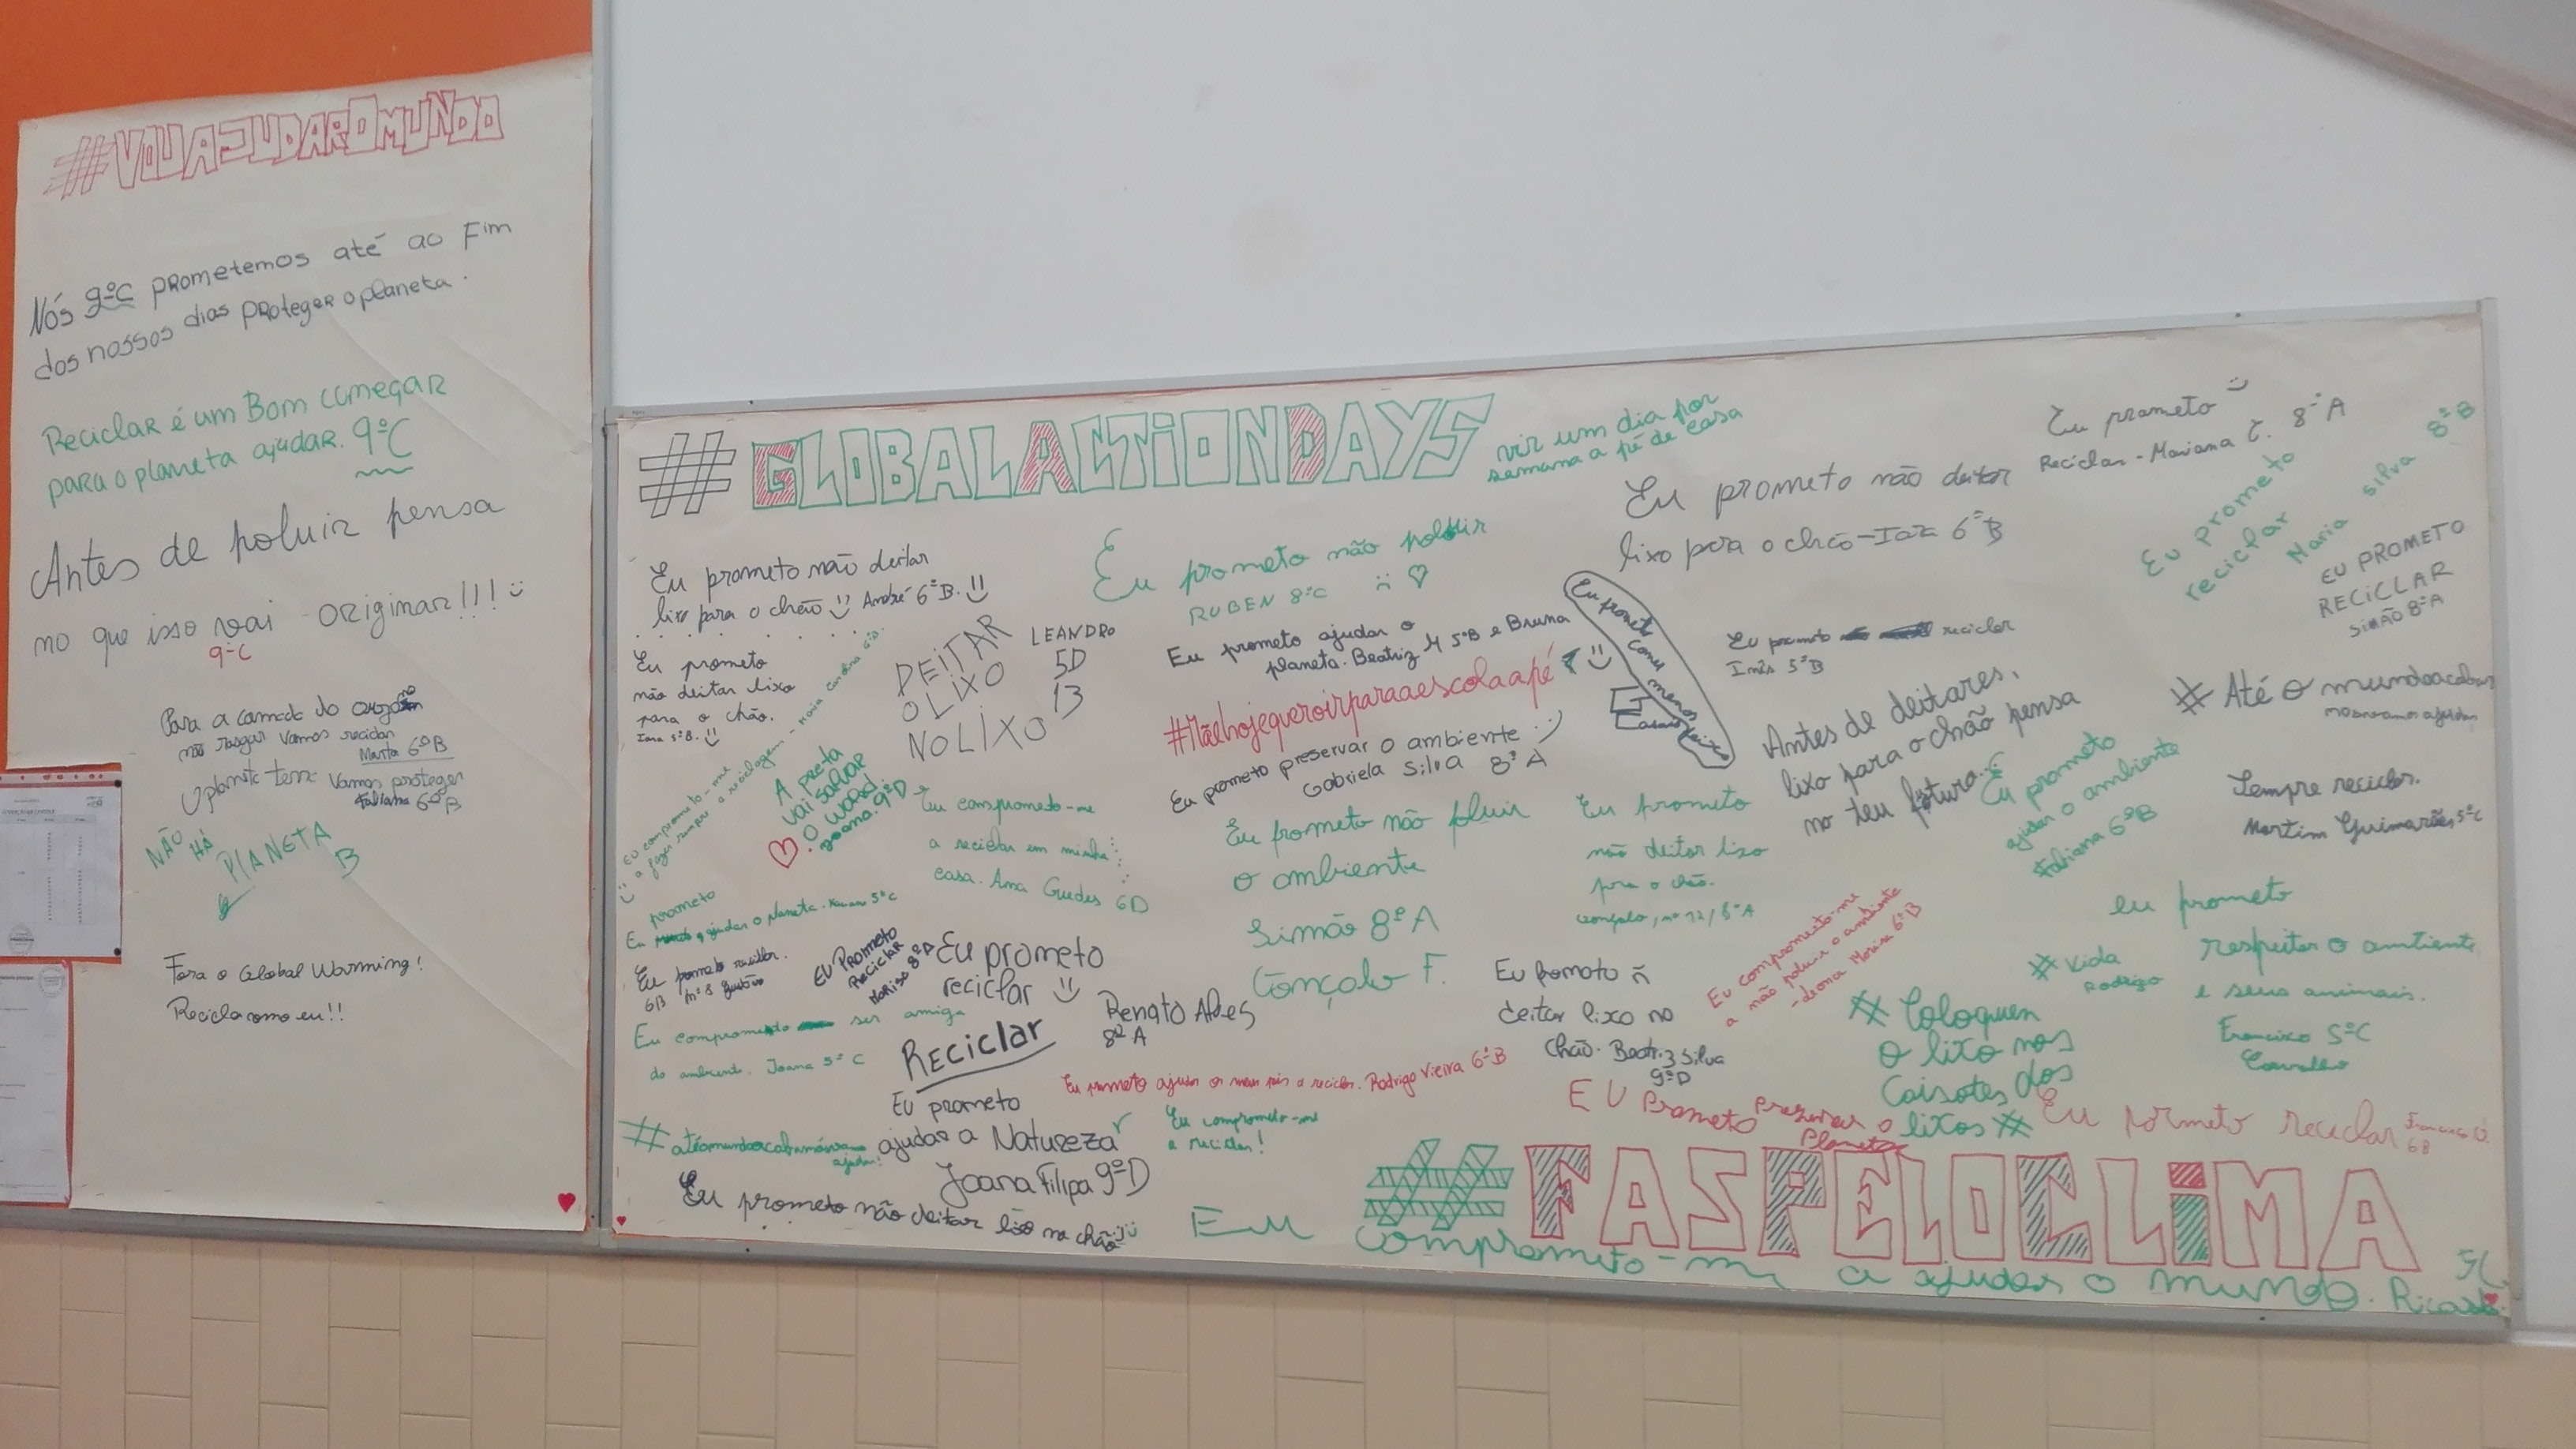 #VOUAJUDAROMUNDO
Nós 9ºC prometemos até ao Fim
dos nossos dias proteger o planeta.
Reciclar é um Bom começar
para o planeta ajudar. 9ºC
Antes de poluir pensa
no que isso vai originar!!! :)
9ºC
Para a camada do
não rasgar vamos reciclar
Marta 6ºB
O planeta tem Vamos proteger
Fabiana 6ºB
NÃO
HÁ
PLANETA
B
Fora o Global Warming!
Recicla como eu!!
#GLOBALACTIONDAYS
vir um dia por
semana a pé de casa
Eu prometo
Reciclar - Mariana C. 8ºA
Eu prometo não deitar
lixo para o chão - Iara 6ºB
Eu prometo
reciclar
Maria Silva 8ºB
EU PROMETO
RECiCLAR
SiMÃO 8ºA
Eu prometo não deitar
lixo para o chão !! André 6ºB. !!
Eu prometo não poluir
RUBEN 8ºC
Eu prometo
não deitar lixo
para o chão.
Iara 5ºB. :)
DEiTAR
O LiXO
NO LiXO
LEANDRO
5D
13
Eu prometo ajudar o
planeta. Beatriz M 5ºB e Bruna
#Mãehojequeroirparaaescolaapé
Eu prometo preservar o ambiente :)
Gabriela Silva 8ºA
Eu prometo comer menos
Eu prometo reciclar
Inês 5ºB
Antes de deitares,
lixo para o chão pensa
no teu futuro...
#Até o mundo acabar
nós vamos ajudar
Sempre reciclar.
Martim Guimarães 5ºC
Eu prometo
ajudar o ambiente
Fabiana 6ºB
Eu comprometo-me
a fazer sempre a reciclagem - Maria Carolina 6ºD.
A preta
vai salvar
o world
Joana. 9ºD
Eu comprometo-me
a reciclar em minha
casa. Ana Guedes 6D
Eu prometo não pluir
o ambiente
Simão 8ºA
Gonçalo F.
Eu prometo
não deitar lixo
para o chão.
Gonçalo, nº 12/8ºA
prometo
Eu ajudar o planeta. 5ºC
Eu prometo reciclar.
6B nº 8 Gustavo
EU PROMETO
RECiCLAR
MARiSA 8ºD
Eu prometo
reciclar :)
Renato Alves
8ºA
Eu comprometo ser amiga
do ambiente. Joana 5ºC
RECiCLAR
Eu prometo ñ
deitar lixo no
chão. Beatriz Silva
9ºD
Eu comprometo-me
a não poluir o ambiente
Mariza 6ºB
#Vida
Rodrigo
eu prometo
respeitar o ambiente
e seus animais.
Francisco 5ºC
Carvalho
#Coloquem
o lixo nos
caixotes dos
lixos #
Eu prometo ajudar os meus pais a reciclar. Rodrigo Vieira 6ºB
EU Prometo preservar o
Planeta
Eu pormeto reciclar Francisco O.
6B
Eu prometo
ajudar a Natureza
Joana Filipa 9ºD
#atéomundoacabarnósvamos
ajudar!
Eu comprometo-me
a reciclar!
Eu prometo não deitar lixo no chão
#FASPELOCLiMA
Eu comprometo-me a ajudar o mundo. Ricardo
5C